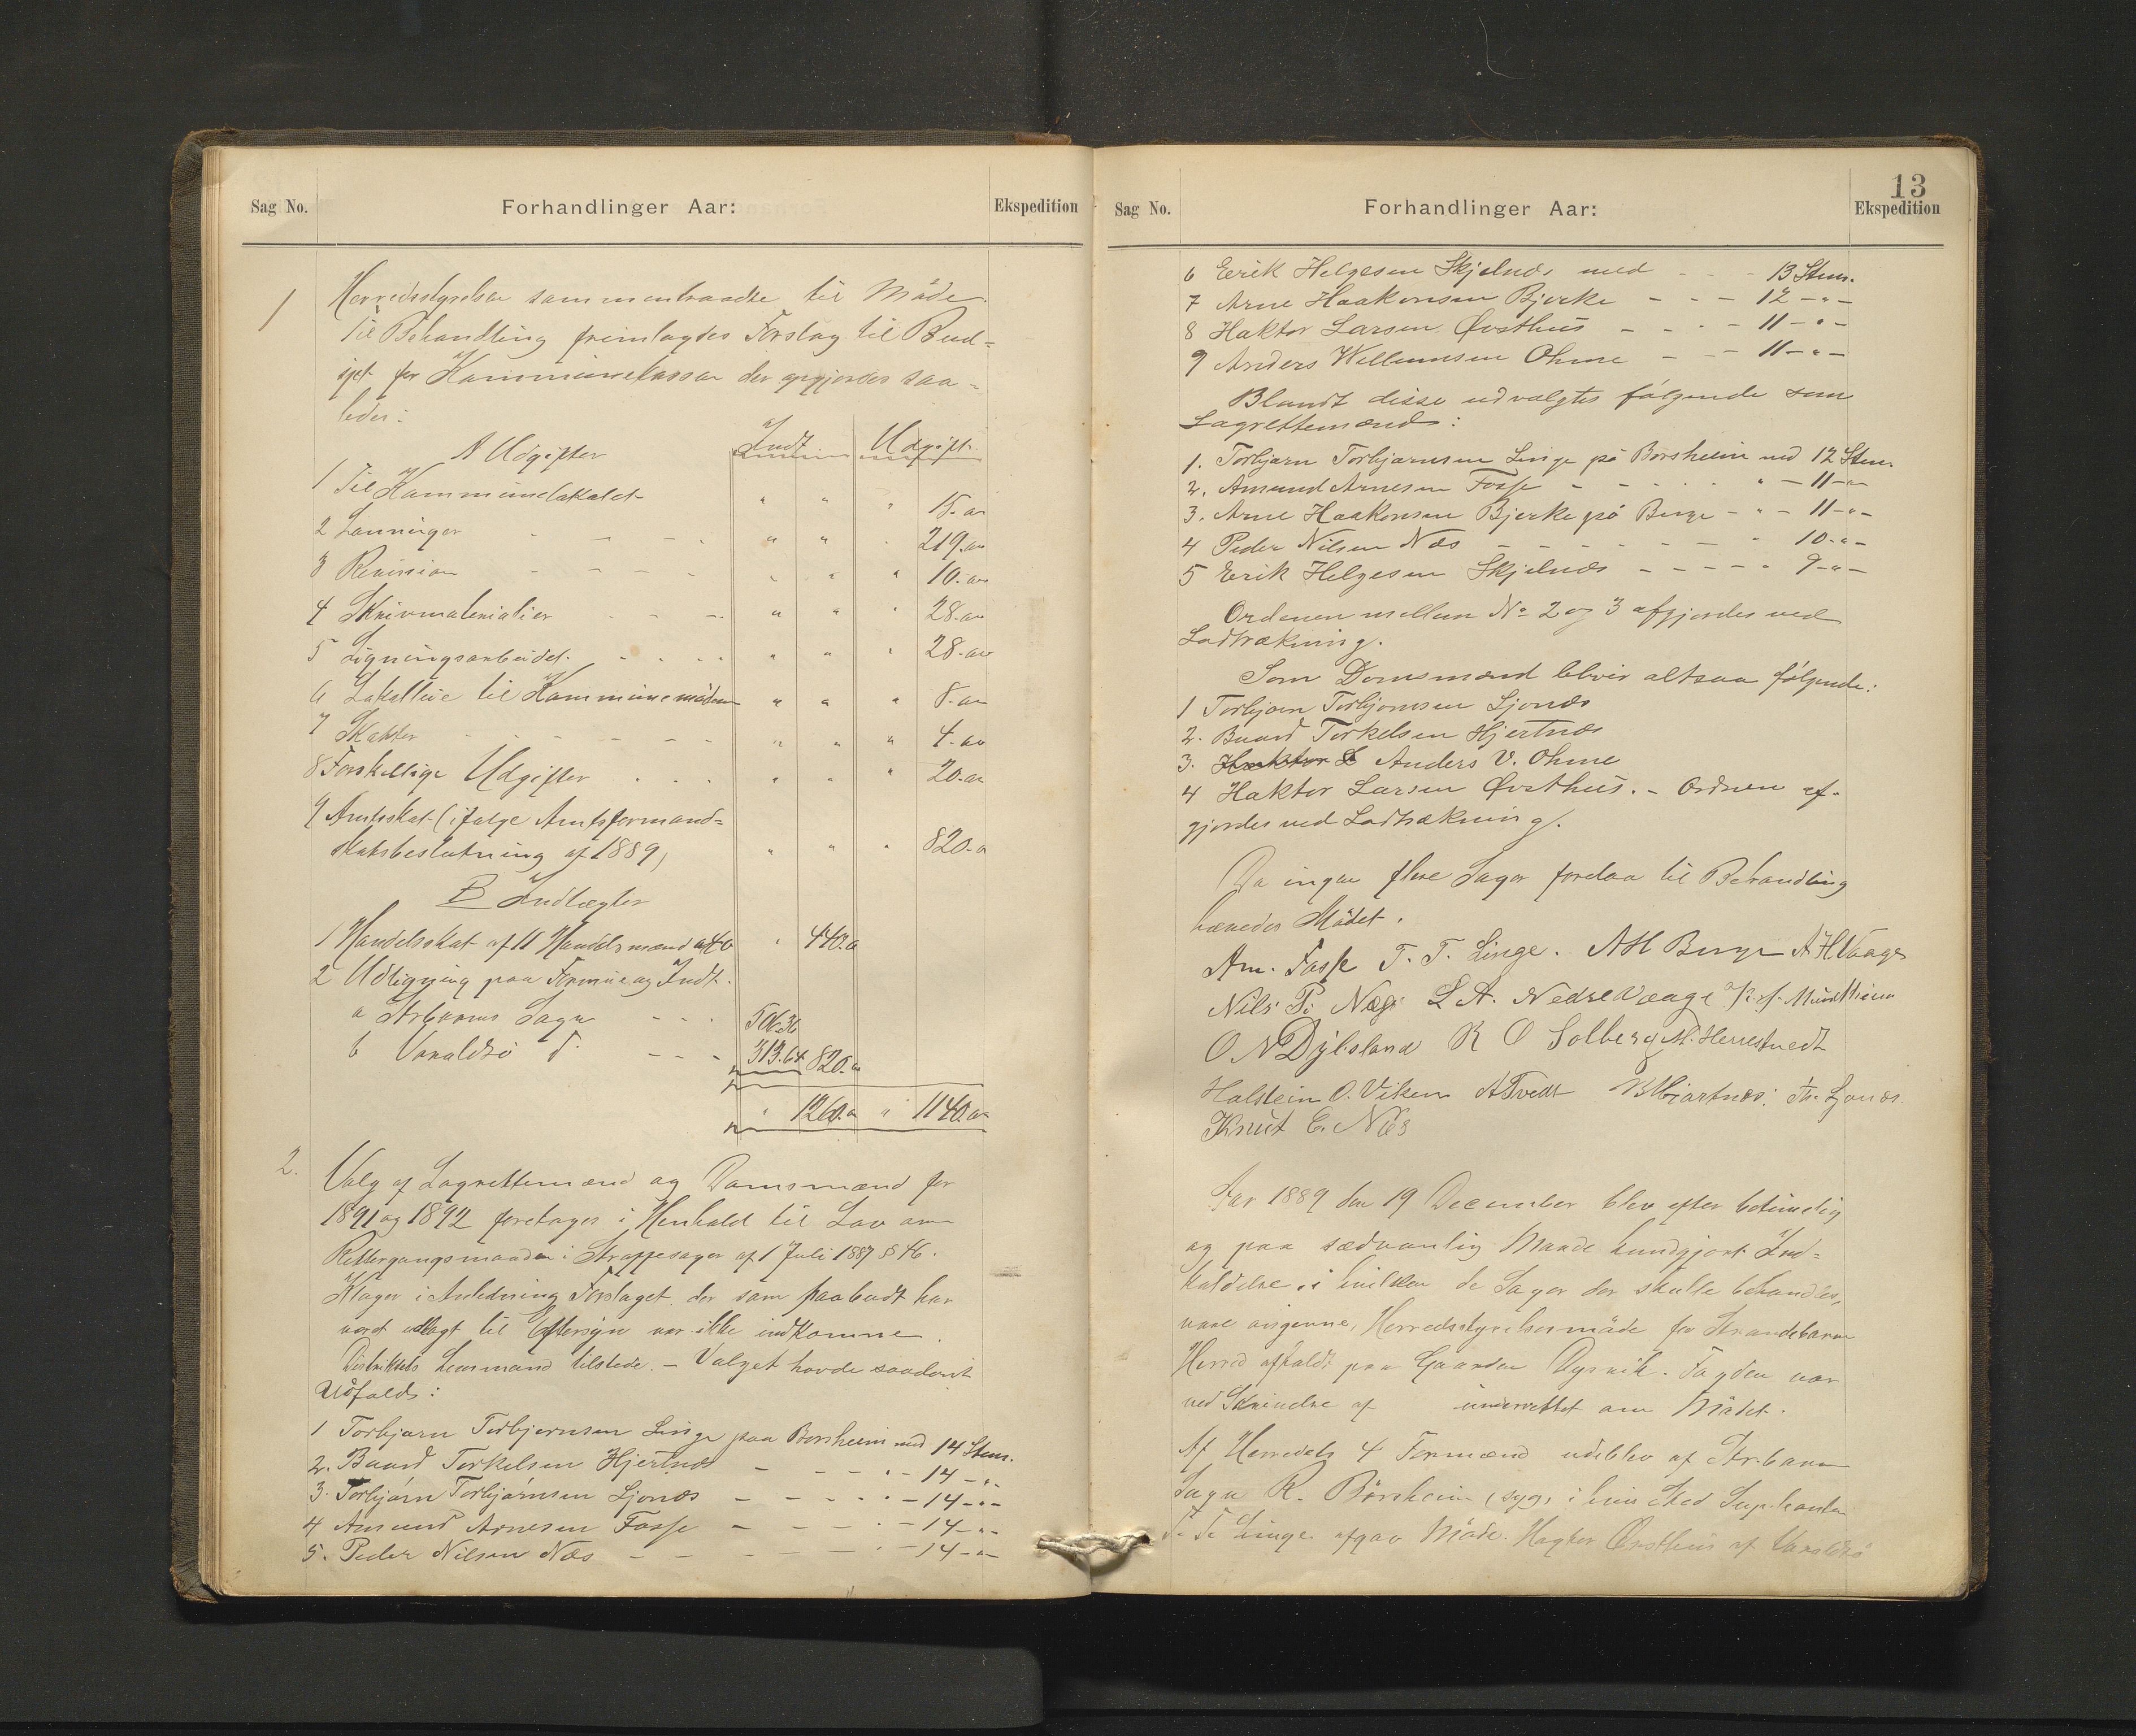 Sag No.
Forhandlinger Aar:
Ekspedition
1
Herredsstyrelsen sammentraadte til Møde.
Til Behandling fremlagdes Forslag til Bud-
get for Kommunekassen der opgjordes saa-
ledes:
A Udgifter Indt. Udgift.
1 Til Kommunelokalet " " " 15."
2 Lønninger - - - - " " " 219."
3 Revision - - - - " " " 10."
4 Skrivmaterialier - - - " " " 28."
5 Ligningsarbeidet - - - - " " " 28."
6 Lokalleie til Kommunemøderne " " " 8."
7 Skatter - - - - - - " " " 4."
8 Forskellige Udgifter - - - " " " 20."
9 Amtsskat (ifølge Amtsformand-
skabsbeslutning af 1889) " " " 820."
B Indtægter
1 Handelsskat af 11 Handelsmænd a 40 " 440."
2 Udligning paa Formue og Indt.
a Strbarms Sogn - - - 506.36
b Varaldsø d. - - - 313.64 820."
" 1260." " 1140."
2.
Valg af Lagrettemænd og Domsmænd for
1891 og 1892 foretoges i Henhold til Lov om
Rettergangsmaaden i Straffesager af 1 Juli 1887 § 46.
Klager i Anledning Forslaget der som paabudt har
været udlagt til Eftersyn var ikke indkomne.
Distriktets Lensmand tilstede. - Valget havde saadant
Udfald:
1 Torbjørn Torbjørnsen Linge paa Børsheim med 14 Stem.
2. Baard Torkelsen Hjertnæs - - - " - 14 - " -
3. Torbjørn Torbjørnsen Ljonæs - - - - " - 14 - " -
4 Amund Arnesen Fosse - - - " - 14 - " -
5. Peder Nilsen Næs - - - - - " - 14 - " -
13
Sag No.
Forhandlinger Aar:
Ekspedition
6 Eerik Helgesen Skjelnæs med - - - 13 Stem.
7 Arne Haakonsen Bjerke - - - 12 - " -
8 Haktor Larsen Øvsthus - - - - 11 - " -
9 Anders Willumsen Ohme - - - 11 - " -
Blandt disse udvalgtes følgende som
Lagrettemænd:
1. Torbjørn Torbjørnsen Linge på Børsheim med 12 Stem.
2. Amund Arnesen Fosse - - - - - " - 11 - " -
3. Arne Haakonsen Bjerke på Berge - " - 11 - " -
4 Peder Nilsen Næs - - - - - - - " 10 - " -
5 Eerik Helgesen Skjelnæs - - - - - " 9 - " -
Ordenen mellem No 2 og 3 afgjordes ved
Lodtrækning.
Som Domsmænd blivir altsaa følgende:
1 Torbjørn Torbjørnsen Ljonæs
2. Baard Torkelsen Hjertnæs
3. Haktor L Anders V. Ohme
4 Haktor Larsen Øvsthus. - Ordnen af-
gjordes ved Lodtrækning.
Da ingen flere Sager forelaa til Behandling
hævedes Mødet.
Am. Fosse T. T. Linge. A H Berge A H Vaage
Nils P. Næs L A. Nedre Vaage
O N Dysland R O Solberg M. Herrestvedt
Halstein O. Viken A Tvedt B Hjartnæs. Th. Ljonæs
Knut E. Næs
Aar 1889 den 19 December blev efter betimelig
og paa sædvanlig Maade kundgjort Ind-
kaldelse i hvilken de Sager der skulle behandles,
vare angivne, Herredsstyrelsesmøde for Strandebarm
Herred afholdt paa Gaarden Dysvik. Fogden var
ved Skrivelse af underrettet om Mødet.
Af Herredets 4 Formænd udeblev af Str.barm
Sogn R. Børsheim (syg) i hvis Sted Suplianten
T. T. Linge afgav Møde. Hagtor Øvsthus af Varaldsø